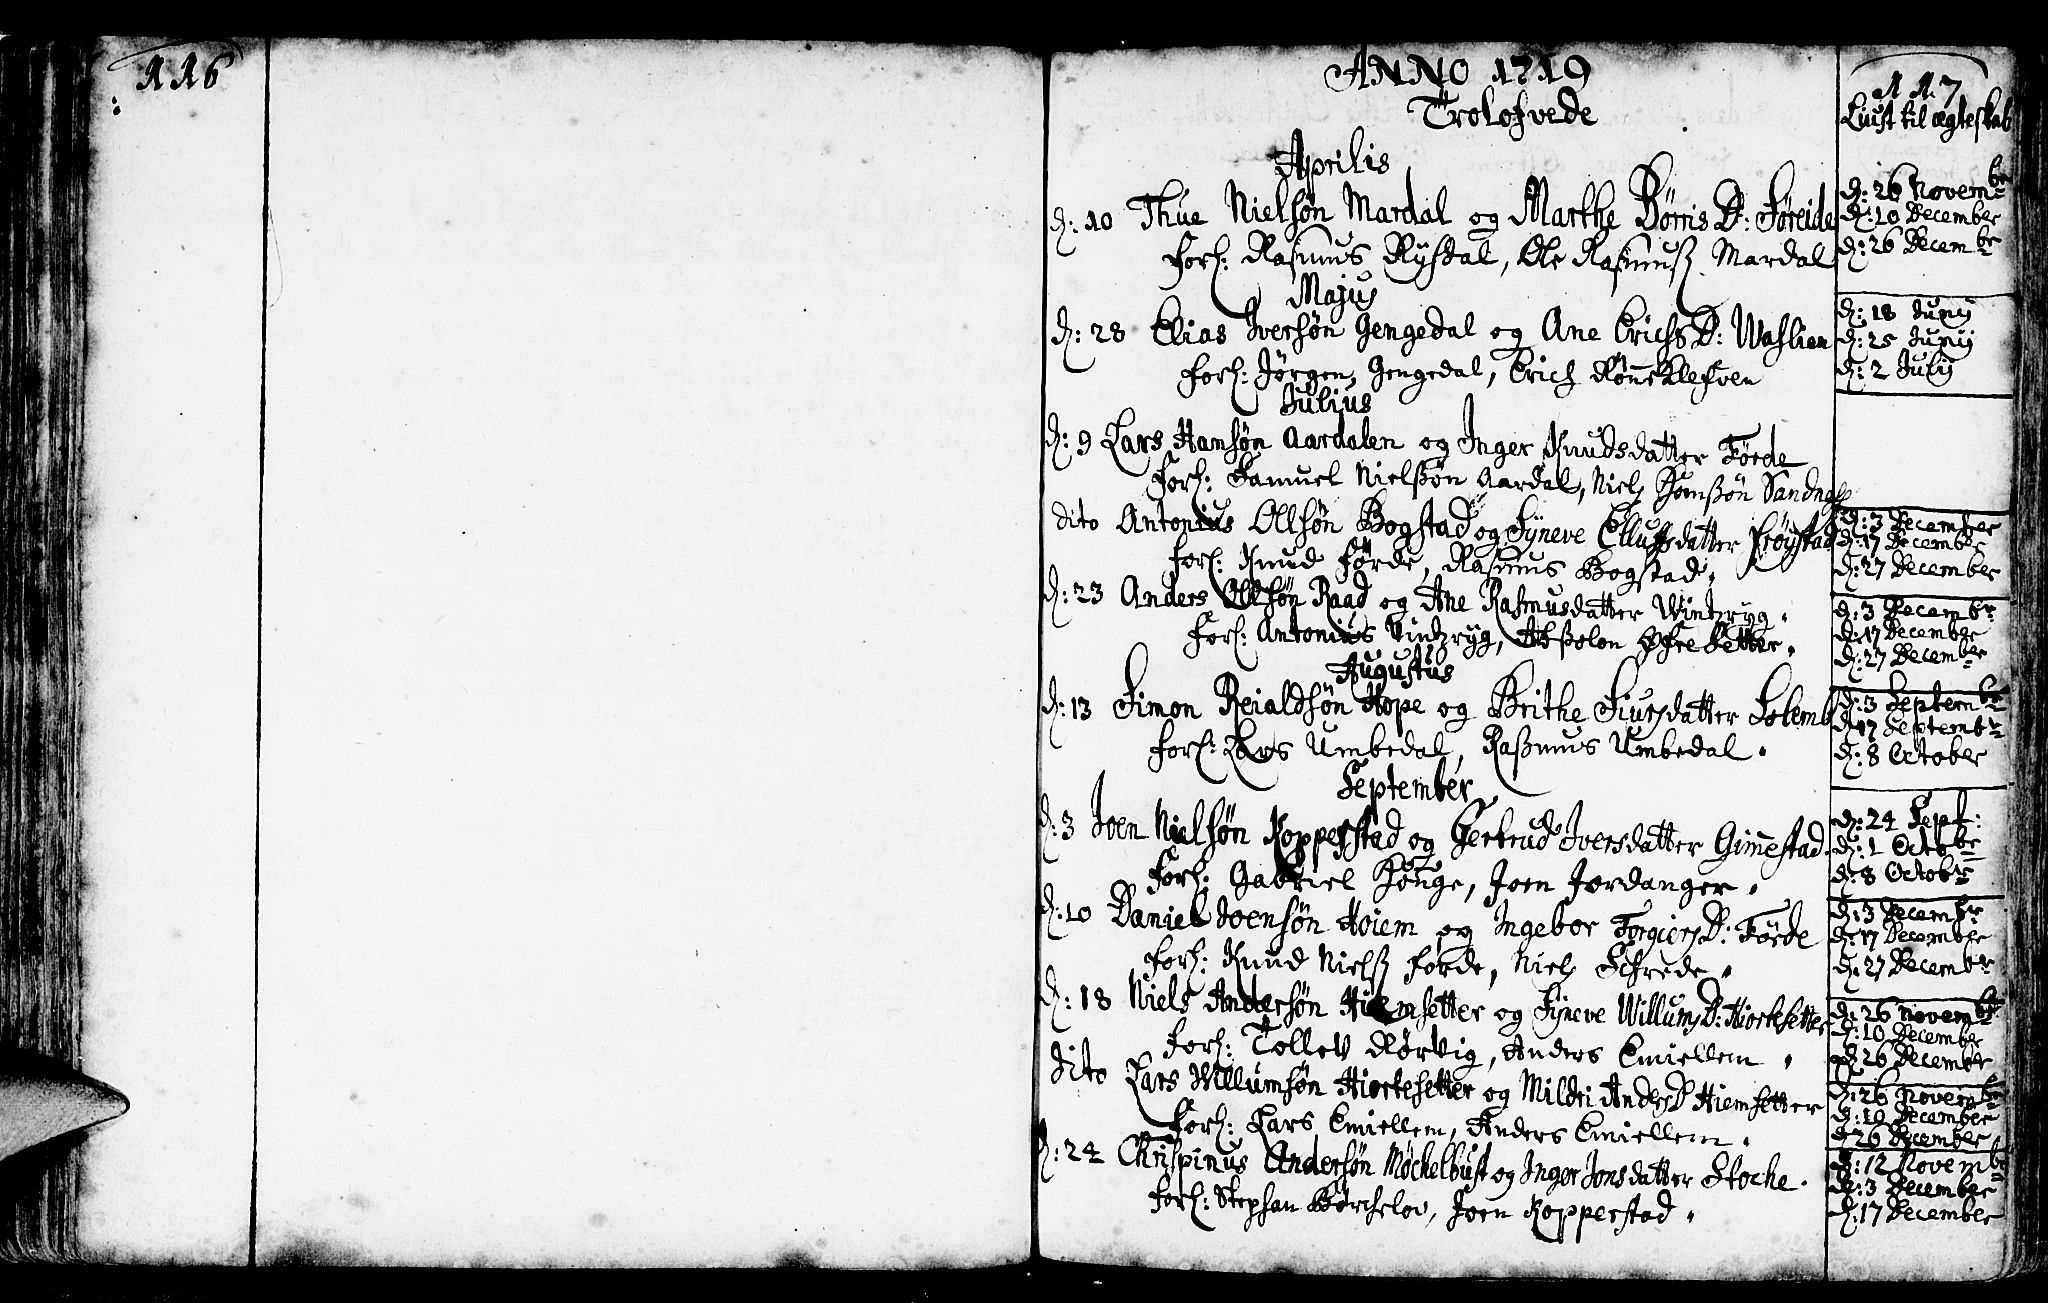 116
ANNO 1719
117
Trolofvede
Liust til ægteskab
Aprilis
d: 10 Thue Nielsøn Mardal og Marthe Børris D: Føreide
Forl: Rasmus Rysdal, Ole Rasmusß Mardal
d: 26 Novembr
d: 10 December
d: 26 Decembr
Majus
d: 28 Elias Iversøn Gengedal og Ane Erichs D: Waslien
Forl: Jørgen Gengedal, Erich Rønneklefven
d: 18 Junij
d: 25 Junij
d: 2 Julij
Julius
d: 9 Lars Hansøn Aardalen og Inger Knudsdatter Førde
Forl: Samuel Nielßøn Aardal, Niels Sandnes
dito Antonius Ollsøn Bogstad og Syneve Ellufsdatter Frøystad
Forl: Knud Førde, Rasmus Bogstad
d: 3 December
d: 17 December
d: 27 December
d: 23 Anders Ollsøn Raad og Ane Rasmusdatter Wintzryg
Forl: Antonius Vintzryg, Abßolon Øfre Setter
d: 3 Decembr
d: 17 December
d: 27 Decembr
Augustus
d: 13 Simon Reialdsøn Hope og Brithe Siursdatter Solemb
Forl: Lars Umbedal, Raßmus Umbedal
d: 3 Septembr
d: 17 Septembr
d: 8 October
September
d: 3 Joen Nielsøn Kopperstad og Gertrud Iversdatter Gimestad
Forl: Gabriel Houge, Joen Jordanger
d: 24 Sept:
d: 1 Octobr
d: 8 Octobr
d: 10 Daniel Joensøn Hoiem og Ingebor Torgiers D: Førde
Forl: Knud Nielß Førde, Niels Schrede
d: 3 Decembr
d: 17 December
d: 27 Decembr
d: 18 Niels Andersøn Hiemsetter og Syneve Willums D: Hiortesetter
Forl: Tollev Rørvig, Anders Emiellem
d: 26 Novembr
d: 10 December
d: 26 December
dito Lars Willumsøn Hiortesetter og Mildri Anders D Hiemsetter
Forl: Lars Emiellem, Anders Emiellem
d: 26 Novembr
d: 10 December
d 26 December
d: 24 Chrispinus Andersøn Møchelbust og Inger Jonsdatter Stoche
Forl: Stephan, Joen Kopperstad
d: 12 Novembr
d: 3 December
d: 17 December